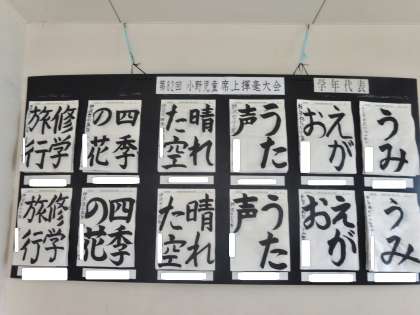 第82回 小野児童席上揮毫大会 学年代表
うみ
えがお
うた声
晴れた空
四季の花
修学旅行
うみ
えがお
うた声
晴れた空
四季の花
修学旅行